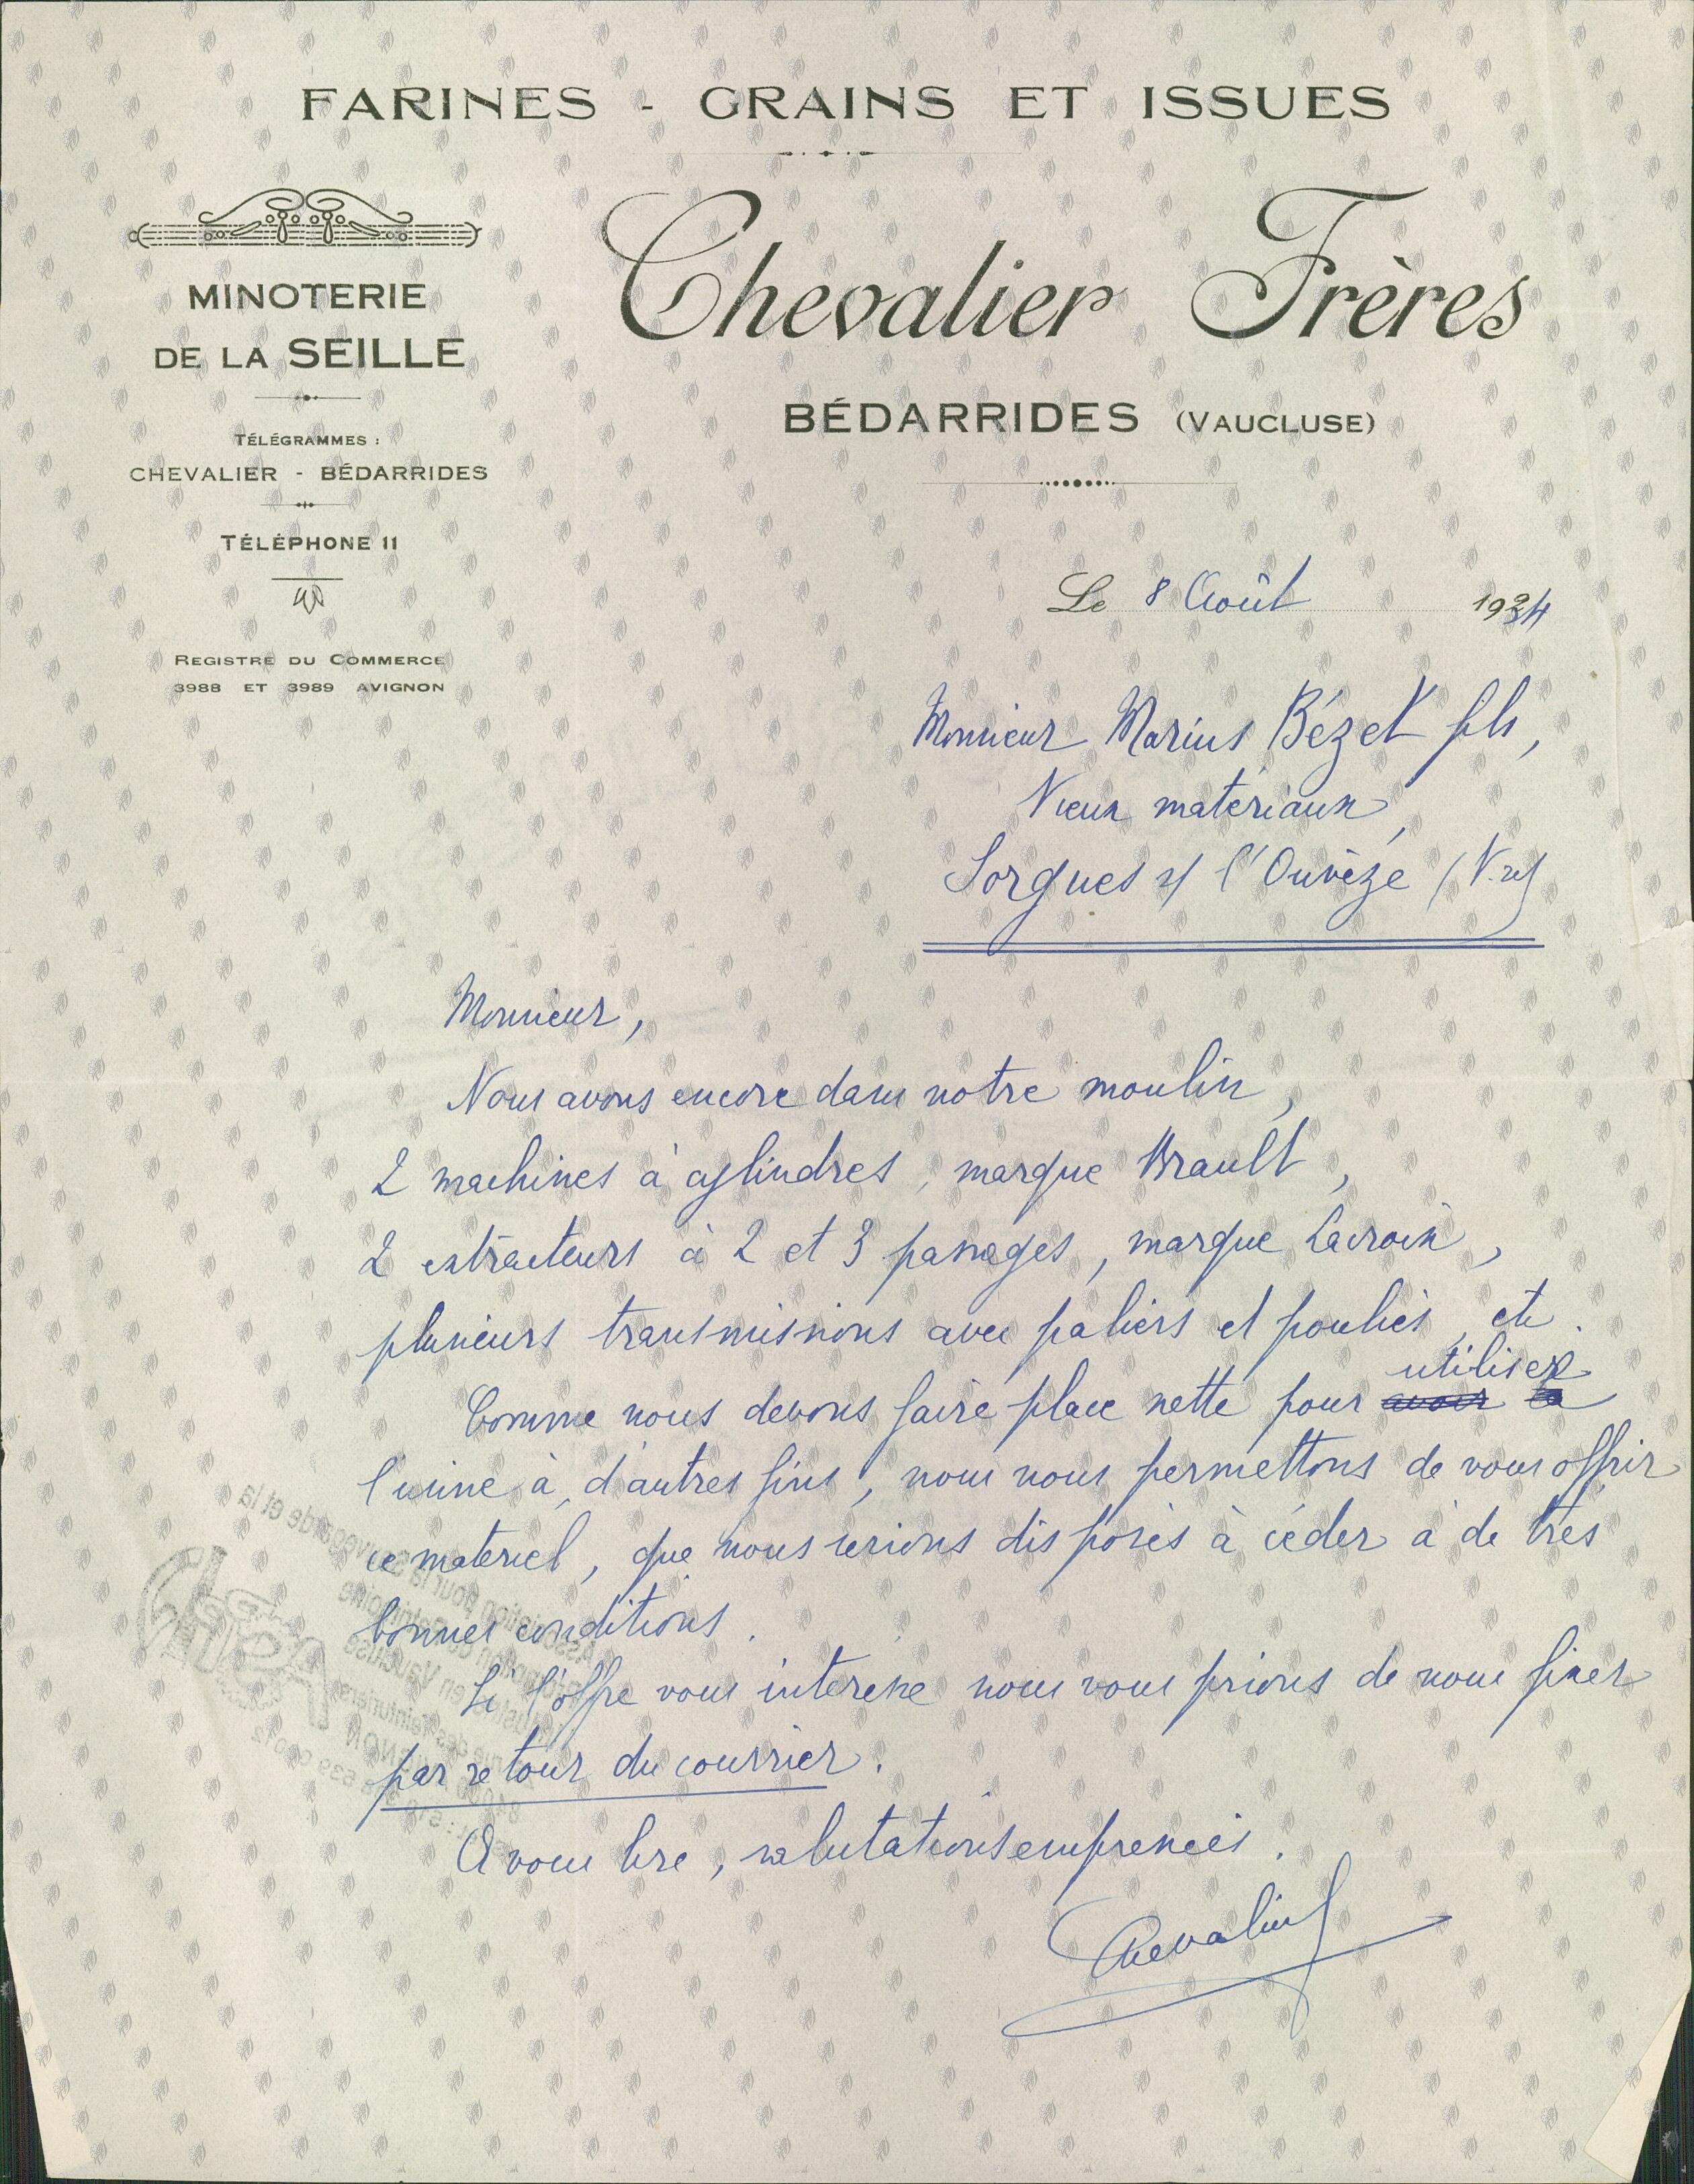 FARINES - GRAINS ET ISSUES
MINOTERIE
DE LA SEILLE
TÉLÉGRAMMES :
CHEVALIER - BÉDARRIDES
TÉLÉPHONE 11
REGISTRE DU COMMERCE
3988 ET 3989 AVIGNON
Chevalier Frères
BÉDARRIDES (VAUCLUSE)
Le 8 Août 1934
Monsieur Marius Bézet fils,
Vieux matériaux,
Sorgues s/ l'Ouvèze (Vse)
Monsieur,
Nous avons encore dans notre moulin,
2 machines à cylindres, marque Brault,
2 extracteurs à 2 et 3 passages, marque Lacroix,
plusieurs transmissions avec paliers et poulies, etc.
utiliser
Comme nous devons faire place nette pour avoir la
l'usine à d'autres fins, nous nous permettons de vous offrir
ce materiel, que nous serions disposés à céder à de très
bonnes conditions.
Si l'offre vous interesse nous vous prions de nous fixer
par retour du courrier.
A vous lire, salutations empressées.
Chevalier
Association pour la sauvegarde et la
promotion du patrimoine
industriel en Vaucluse
rue des Teinturiers
AVIGNON